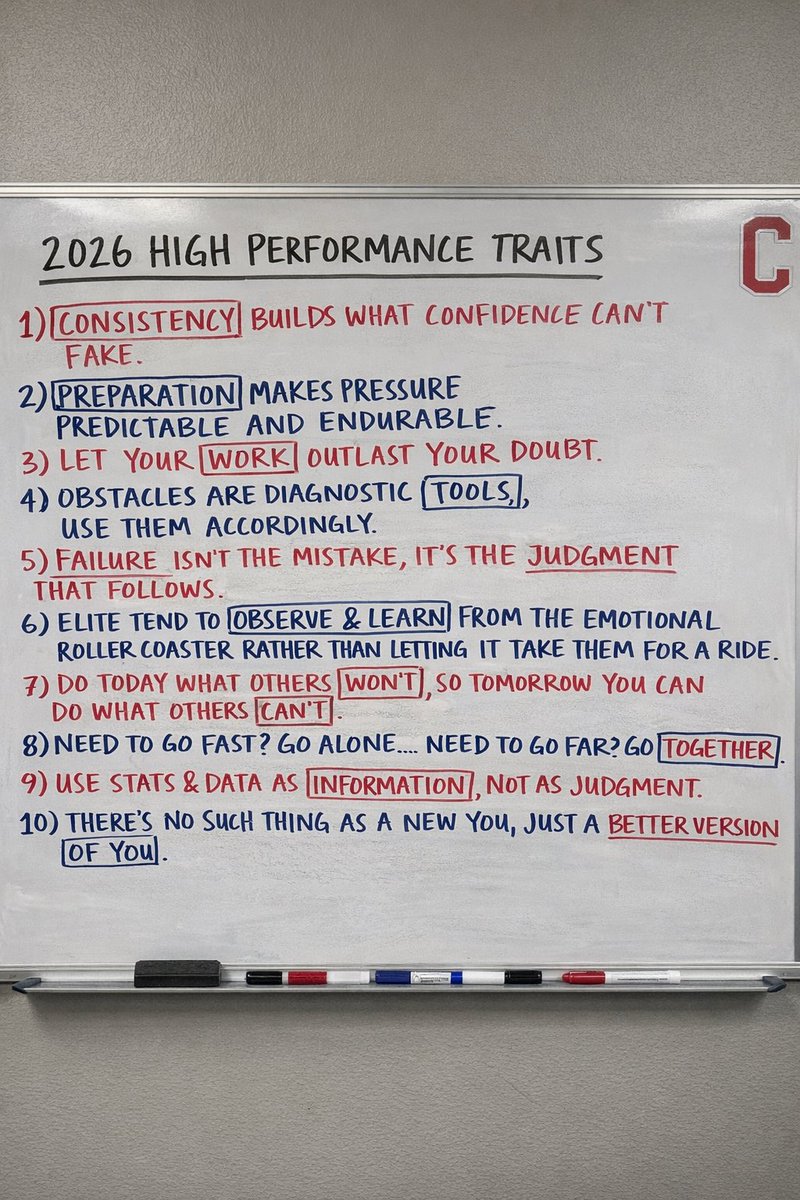 2026 HIGH PERFORMANCE TRAITS
C
1) CONSISTENCY BUILDS WHAT CONFIDENCE CAN'T
FAKE.
2) PREPARATION MAKES PRESSURE
PREDICTABLE AND ENDURABLE.
3) LET YOUR WORK OUTLAST YOUR DOUBT.
4) OBSTACLES ARE DIAGNOSTIC TOOLS,,
USE THEM ACCORDINGLY.
5) FAILURE ISN'T THE MISTAKE, IT'S THE JUDGMENT
THAT FOLLOWS.
6) ELITE TEND TO OBSERVE & LEARN FROM THE EMOTIONAL
ROLLER COASTER RATHER THAN LETTING IT TAKE THEM FOR A RIDE.
7) DO TODAY WHAT OTHERS WON'T, SO TOMORROW YOU CAN
DO WHAT OTHERS CAN'T.
8) NEED TO GO FAST? GO ALONE.... NEED TO GO FAR? GO TOGETHER.
9) USE STATS & DATA AS INFORMATION, NOT AS JUDGMENT.
10) THERE'S NO SUCH THING AS A NEW YOU, JUST A BETTER VERSION
OF YOU.